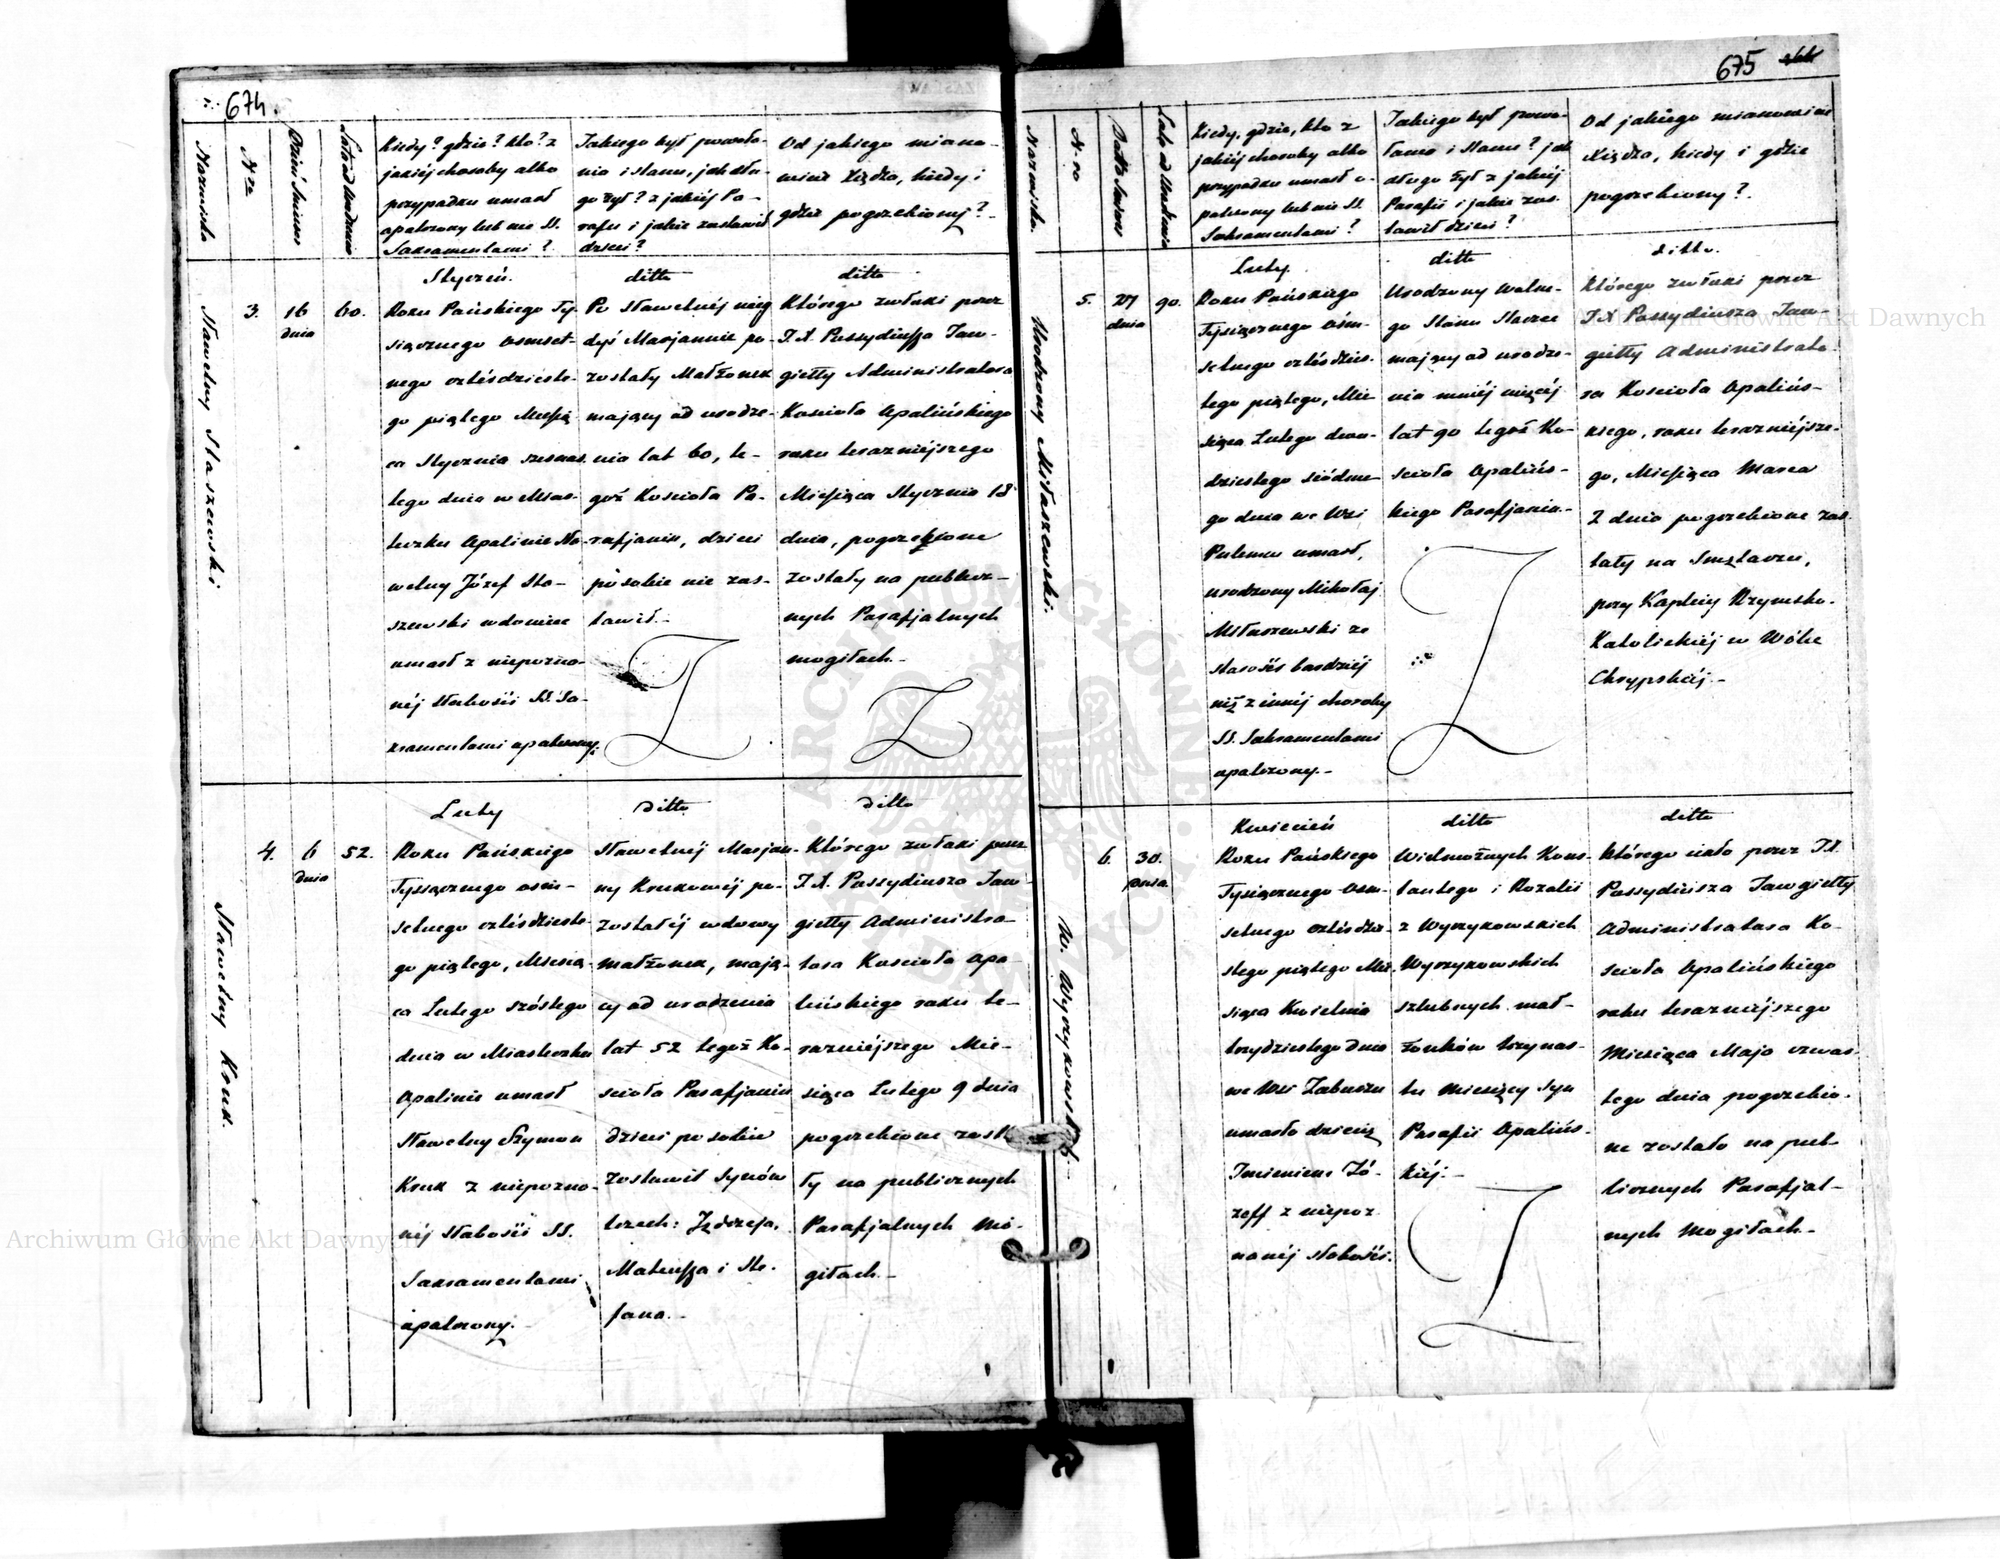 674.
Nazwiska
N ro
Dzień Śmierci
Lata od Urodzenia
Kiedy? gdzie? kto? z
jakiéj choroby albo
przypadku umarł
opatrzony lub nie SS.
Sakramentami?
Jakiego był powoła-
nia i stanu, jak dłu-
go żył? z jakiéj Pa-
rafii i jakie zostawił
dzieci?
Od jakiego miano-
wicie Xiędza, kiedy i
gdzie pogrzebiony?
Sławetny Staszewski
3.
16
dnia
60.
Styczeń.
Roku Pańskiego Ty-
siącznego ośmset-
nego cztérdzieste-
go piątego Miesią
ca Stycznia szesnas
tego dnia w Mias-
teczku Opalinie Sła-
wetny Józef Sta-
szewski wdowiec
umarł z niepozna-
néj słabości SS. Sa-
kramentami opatrzony.
ditto
Po Sławetnéj niegdyś
Marjannie po-
zostały Małżonek
mający od urodze-
nia lat 60, te-
goż Kościoła Pa-
rafjanin, dzieci
po sobie nie zos-
tawił.-
ditto
Którego zwłoki przez
J.X. Possydjusza Jaw-
giełły Administratora
Kościoła Opalińskiego
roku terazniéjszego
Miesiąca Stycznia 18
dnia, pogrzebione
zostały na publicz-
nych Parafjalnych
mogiłach.-
Sławetny Kruk.
4.
6
dnia
52.
Luty
Roku Pańskiego
Tysiącznego ośm-
setnego cztérdzieste-
go piątego, Miesią-
ca Lutego szóstego
dnia w Miasteczku
Opalinie umarł
Sławetny Szymon
Kruk z niepozna-
néj słabości SS.
Sakramentami
opatrzony.-
ditto
Sławetnéj Marjan-
ny Krukowéj po-
zostałéj wdowy
małżonek, mają-
cy od urodzenia
lat 52 tegoż Ko-
scioła Parafjanin
dzieci po sobie
zostawił synów
trzech: Jędrzeja,
Mateusza i Ste-
fana.-
ditto
Którego zwłoki przez
J.X. Possydjusza Jaw-
giełły Administra-
tora Kościoła Opa-
lińskiego roku te-
razniéjszego Mie-
siąca Lutego 9 dnia
pogrzebione zosta
ły na publicznych
Parafjalnych Mo-
giłach.-
675
Nazwiska.
N. ro
Data Śmierci
Lata od Urodzenia
Kiedy, gdzie, kto z
jakiéj choroby albo
przypadku umarł o-
patrzony lub nie SS.
Sakramentami?
Jakiego był powo-
łania i stanu? jak
długo żył z jakiéj
Parafii i jakie zos-
tawił dzieci?
Od jakiego mianowicie
Xiędza, kiedy i gdzie
pogrzebiony?
Urodzony Mitaszewski.
5.
27
dnia
90.
Luty.
Roku Pańskiego
Tysiącznego ośm-
setnego cztérdzies-
tego piątego, Mie
siąca Lutego dwu-
dziestego siódme
go dnia we Wsi
Pulemu umarł,
urodzony Mikołaj
Mitaszewski ze
starości bardziéj
niż z innéj choroby
SS. Sakramentami
opatrzony.-
ditto
Urodzony wolne-
go Stanu Starzec
mający od urodze-
nia mniéj więcéj
lat 90 tegoż Ko-
ścioła Opalińs-
kiego Parafjanin.-
ditto.
Którego zwłoki przez
J.X Possydjusza Jaw-
giełły Administrato-
ra Kościoła Opalińs-
kiego, roku terazniéjsze-
go, Miesiąca Marca
2 dnia pogrzebione zos-
tały na Smętarzu,
przy Kaplicy Rzymsko-
Katolickiéj w Wólce
Chrypskiéj.-
W. Wyrzykowski.
6.
30.
dnia.
Kwiecień
Roku Pańskiego
Tysiącznego ośm-
setnego cztérdzie-
stego piątego Mie-
siąca Kwietnia
trzydziestego dnia
we Wsi Zabużu
umarło dziecię
Imieniem Jó-
zeff z niepoz-
nanéj słabości.
ditto
Wielmożnych Kons-
tantego i Rozalii
z Wyrzykowskich
Wyrzykowskich
szlubnych mał-
żonków trzynas-
tu miesięcy syn
Parafii Opalińs-
kiéj.-
ditto
Którego ciało przez J.X.
Possydiusza Jawgiełły
Administratora Ko-
ścioła Opalińskiego
roku terazniéjszego
Miesiąca Maja czwar-
tego dnia pogrzebio-
ne zostało na pub-
licznych Parafjal-
nych Mogiłach.-
Archiwum Główne Akt Dawnych
Archiwum Główne Akt Dawnych